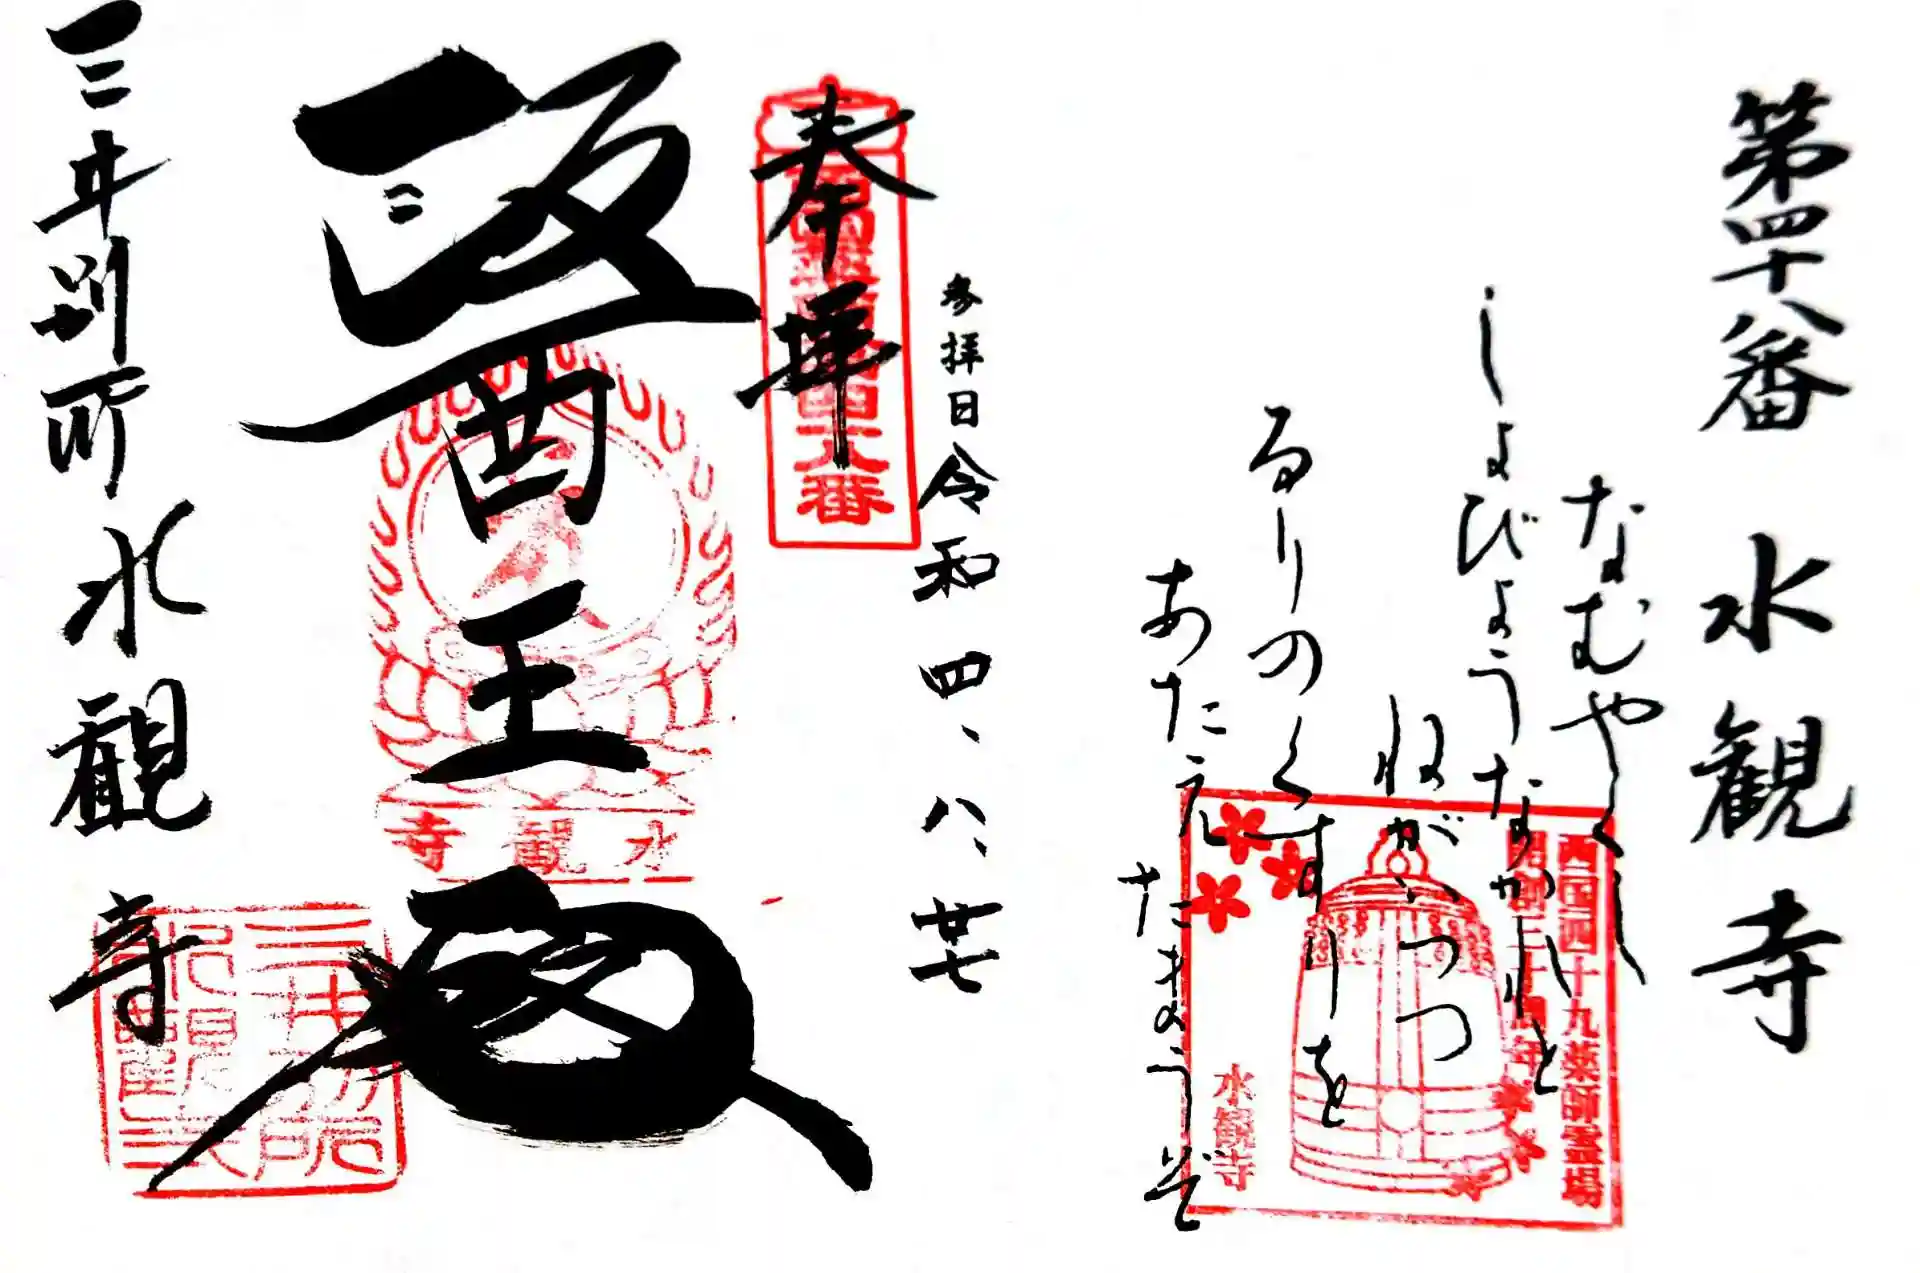 第四十八番 水観寺
なむやくし
しょびょうなかれと
ねがいつつ
るりのくすりを
あたえたまうぞ
西国四十九薬師霊場
開創三十周年
水観寺
参拝日令和四、八、廿七
奉拝
医王殿
水観寺
三井別所 水観寺
三井別所
水観寺